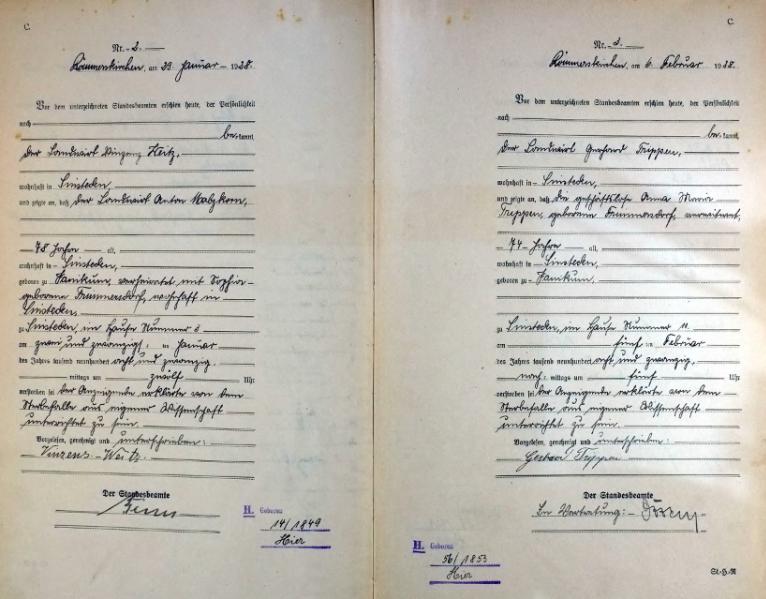 C.
Nr. 2.
Rommerskirchen, am 23 Januar 1928.
Vor dem unterzeichneten Standesbeamten erschien heute, der Persönlichkeit
nach
be kannt,
der Landwirt Vinzenz Weitz,
wohnhaft in Sinsteden,
und zeigte an, daß der Landwirt Anton
78 Jahre alt,
wohnhaft in Sinsteden,
geboren zu Vanikum, verheiratet mit Sophia
geborene Frimmersdorf, wohnhaft in
Sinsteden,
zu Sinsteden, im Hause Nummer 3
am zwei und zwanzigst en Januar
des Jahres tausend neunhundert acht und zwanzig
mittags um zwölf Uhr
verstorben sei. Der Anzeigende erklärte von dem
Sterbefalle aus eigener Wissenschaft
unterrichtet zu sein.
Vorgelesen, genehmigt und unterschrieben:
Vinzens Weitz.
Der Standesbeamte
H. Geboren
14/1849
Hier
C.
Nr. 3.
Rommerskirchen, am 6. Februar 1928.
Vor dem unterzeichneten Standesbeamten erschien heute, der Persönlichkeit
nach
be kannt,
der Landwirt Gerhard Trippen,
wohnhaft in Sinsteden,
und zeigte an, daß die geschäftslose Anna Maria
Trippen, geborene Frimmersdorf, verwitwet,
74 Jahre alt,
wohnhaft in Sinsteden,
geboren zu Vanikum,
zu Sinsteden, im Hause Nummer 11
am fünf ten Februar
des Jahres tausend neunhundert acht und zwanzig
nach mittags um fünf Uhr
verstorben sei. Der Anzeigende erklärte von dem
Sterbefalle aus eigener Wissenschaft
unterrichtet zu sein.
Vorgelesen, genehmigt und unterschrieben:
Gerhard Trippen
Der Standesbeamte
In Vertretung:
H. Geboren
56/1853
Hier
St.-H.-R